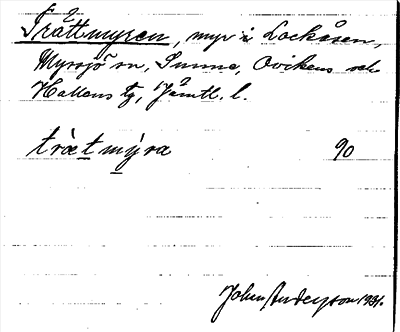 Trättmyren, myr i Lockåsen,
Myssjö sn, Sunne, Ovikens och
Hallens tg, Jämtl. l.
træt mýra 90
Johan Anderson 1931.